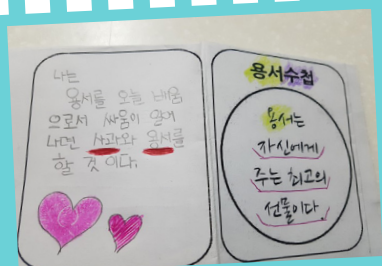 나는
용서를 오늘 배움
으로서 싸움이 일어
나면 사과와 용서를
할 것 이다.
용서수첩
용서는
자신에게
주는 최고의
선물이다.